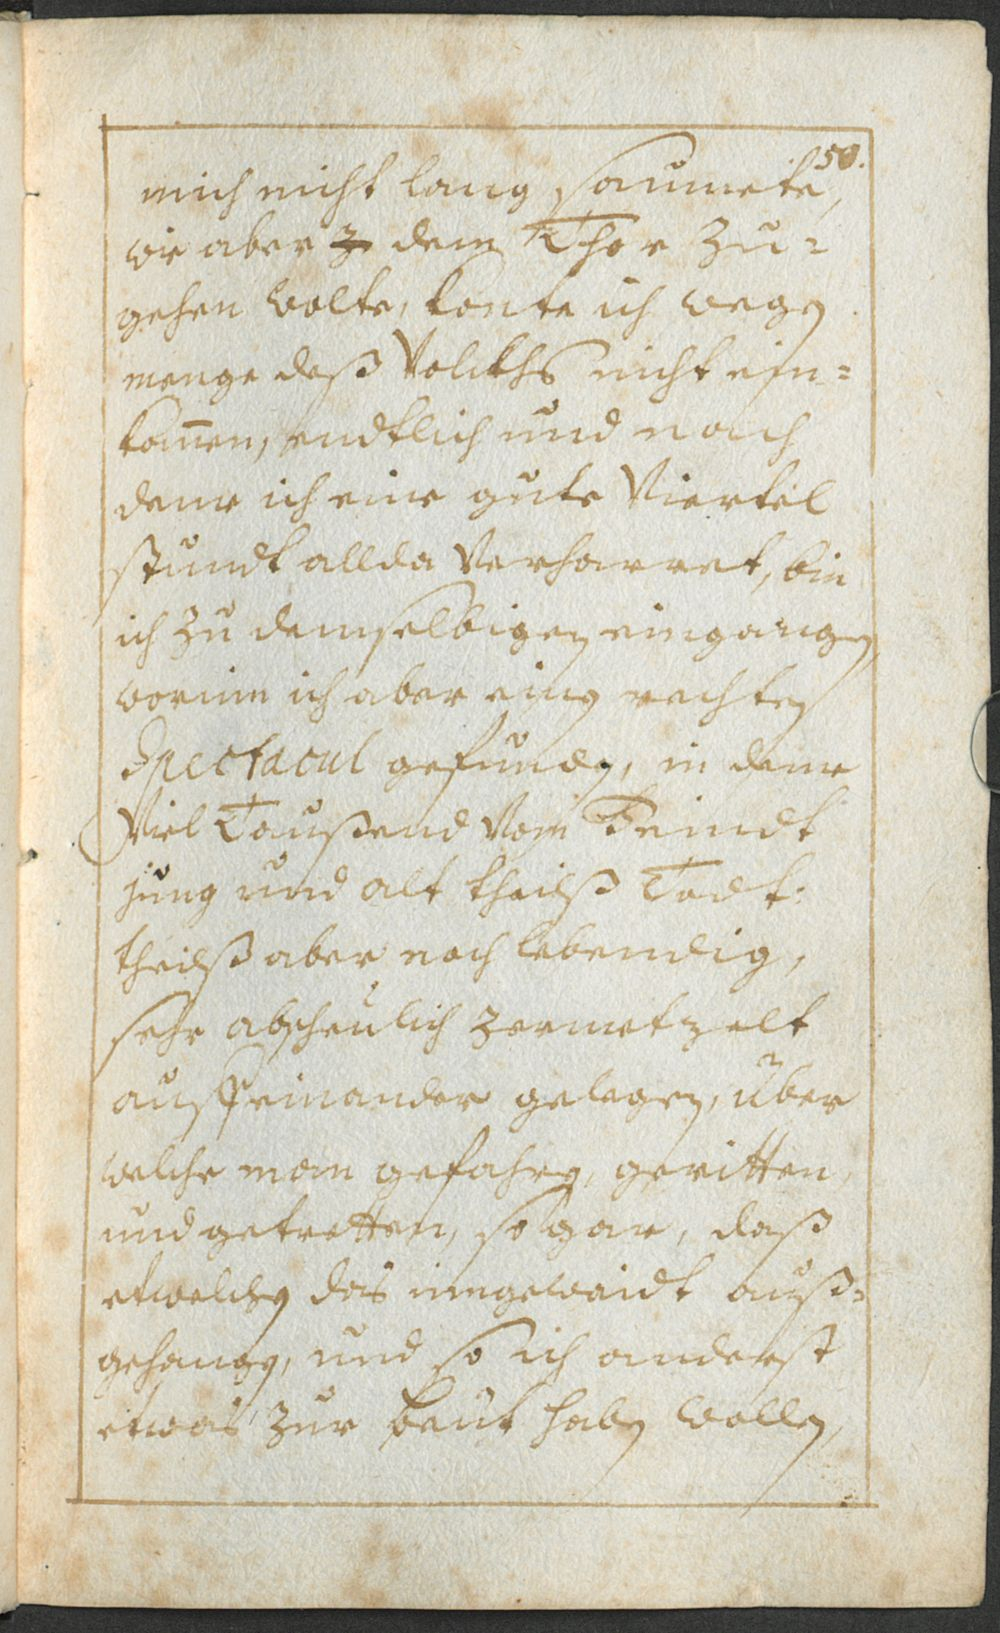 50.
mich nicht lang saumete,
wie aber z dem Thor zu=
gehen wolte, konte ich wegen
menge deß Volckhs nicht ein=
kom̄en, endtlich und nach
deme ich eine gute Viertel
stundt allda verharret, bin
ich zu demselbigen eingangen,
worinn ich aber einen rechten
Spectacul gefunden, in deme
Viel Taußend vom Feindt
jung und alt theilß Todt:
theilß aber noch lebendig,
sehr abscheulich zermetzelt
auffeinander gelegen, über
welche man gefahren, geritten,
und getretten, so gar, daß
etwelchen das inngewaidt auß=
gehangen, und so ich anderst
etwas zur beut haben wollen,